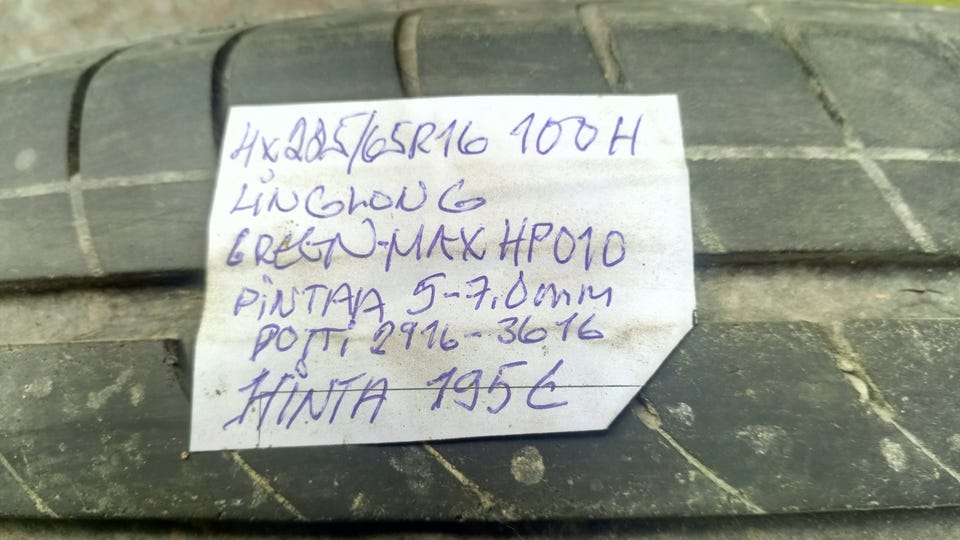 4x225/65R16 100H
LINGLONG
GREEN-MAX HP010
PINTAA 5-7,0mm
DOTTi 2916-3616
HINTA 195€